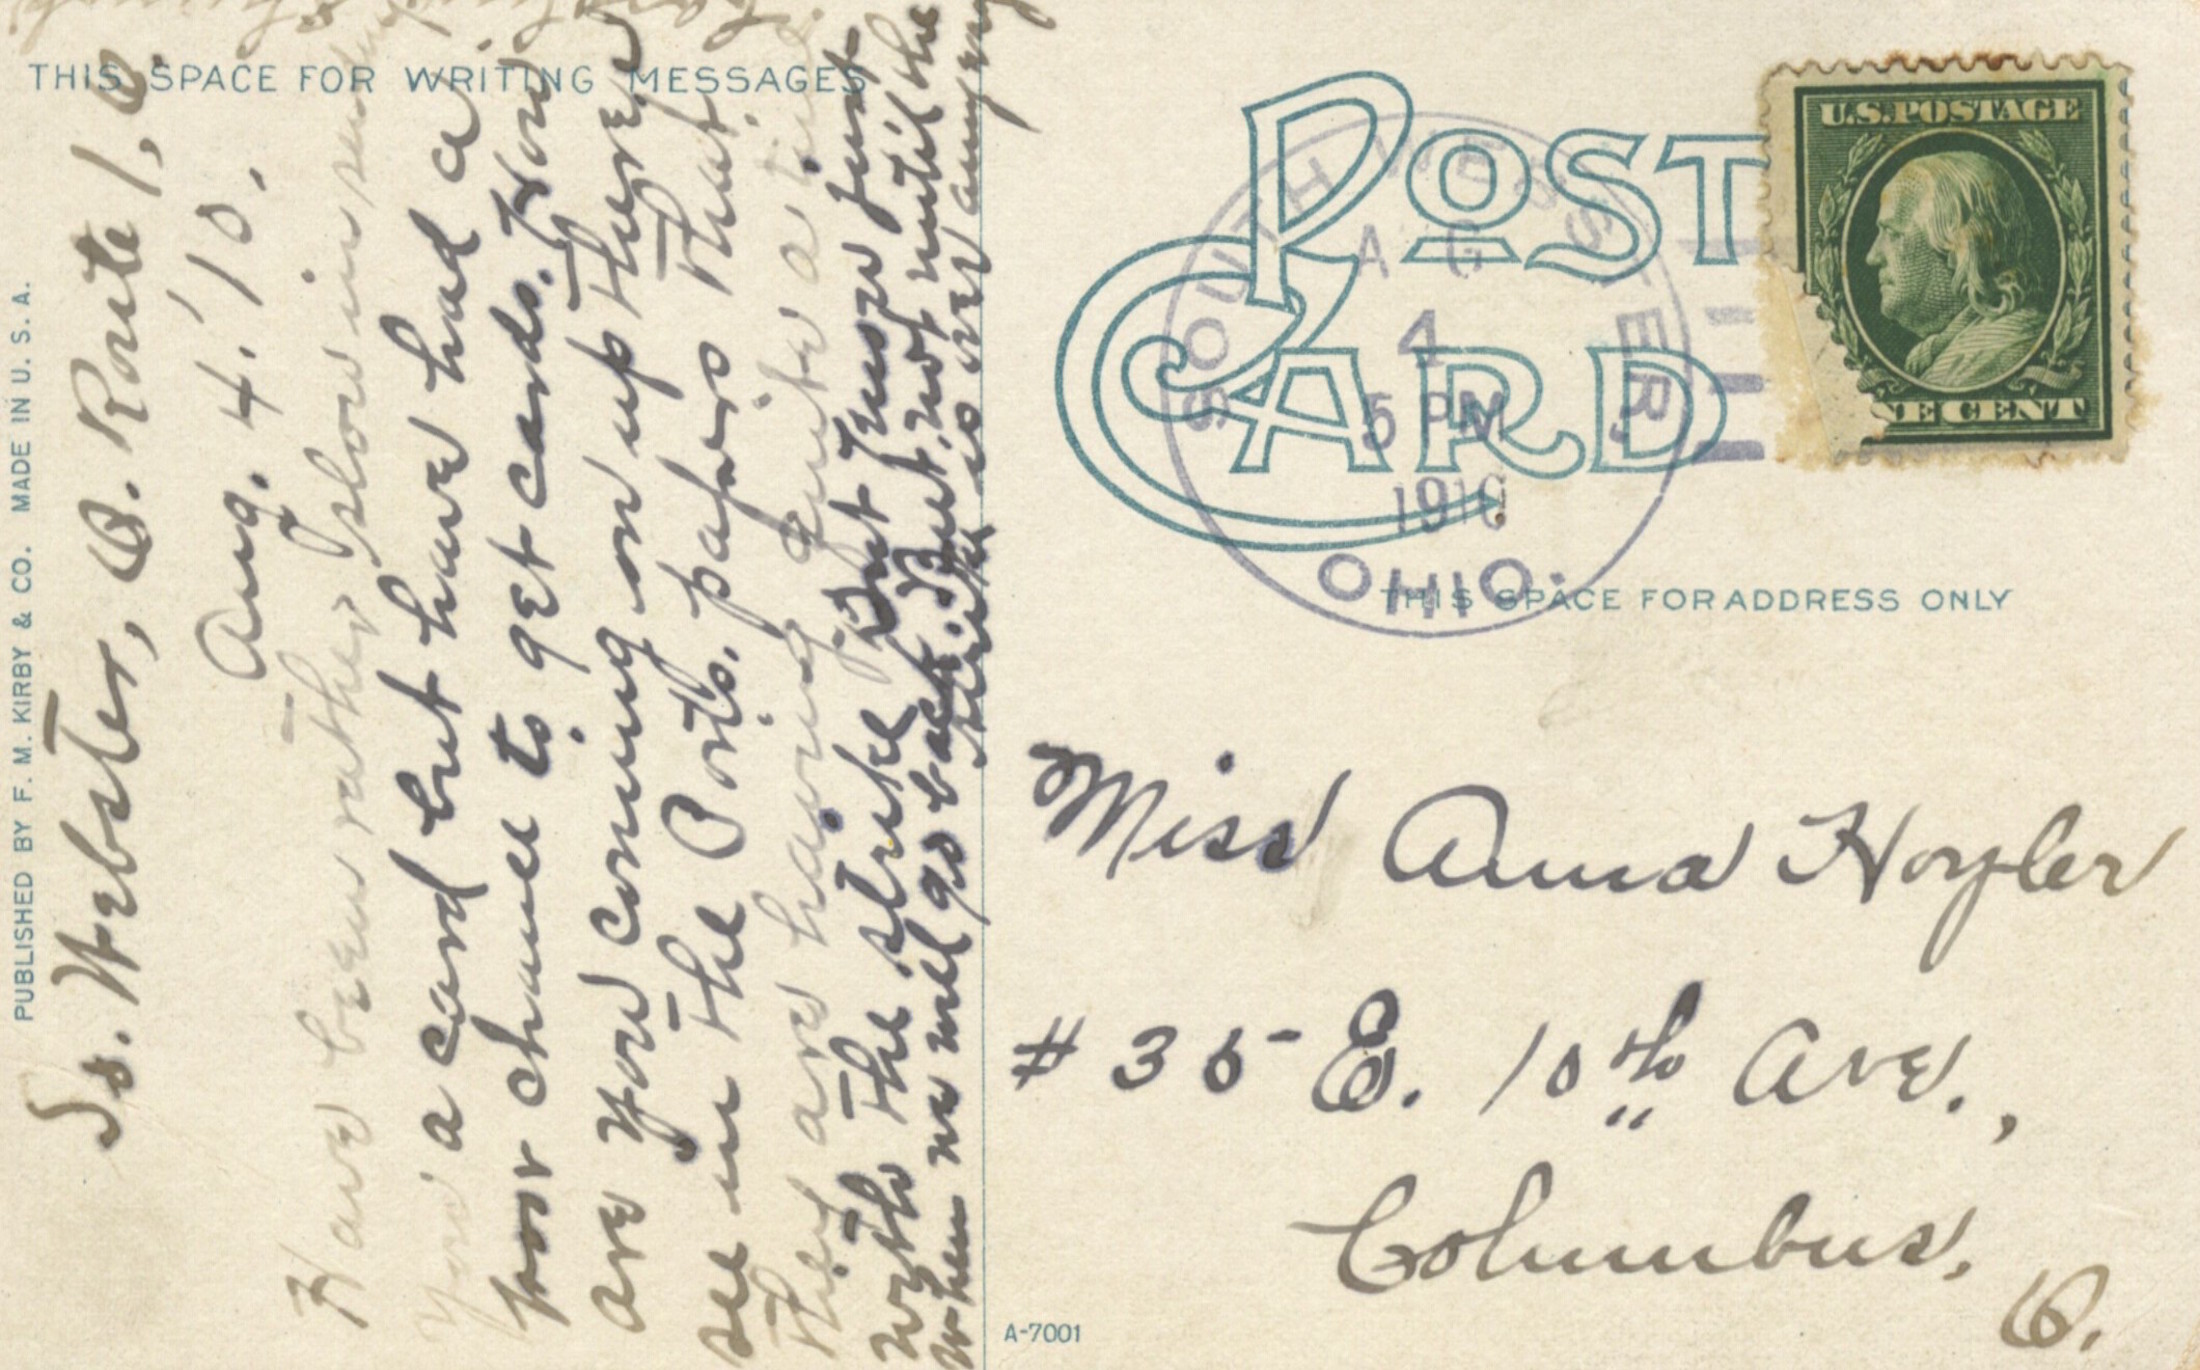 THIS SPACE FOR WRITING MESSAGES
PUBLISHED BY F. M. KIRBY & CO. MADE IN U. S. A.
So. Webster, O. Route 1, O
Aug. 4. '10.
Have been rather slow in
you a card but have had a
poor chance to get cards. How
are you coming on up there
see in the Ports. papers that
they are having quite a
with the strike. But
when we will go back. But not until the
strike is over anyway
POST CARD
SOUTH WEBSTER
AG
4
5 PM
1910
OHIO.
U.S. POSTAGE
NE CENT
THIS SPACE FOR ADDRESS ONLY
Miss Anna Hoyler
# 35 E. 10th Ave.,
Columbus,
O.
A-7001